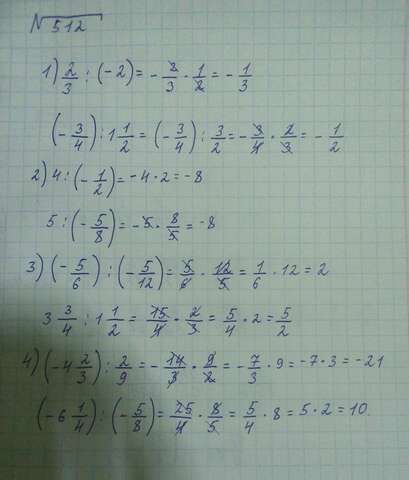 №512
1) 2/3 : (-2) = - 2/3 · 1/2 = - 1/3
(- 3/4) : 1 1/2 = (- 3/4) : 3/2 = - 3/4 · 2/3 = - 1/2
2) 4 : (- 1/2) = -4 · 2 = -8
5 : (- 5/8) = -5 · 8/5 = -8
3) (- 5/6) : (- 5/12) = 5/6 · 12/5 = 1/6 · 12 = 2
3 3/4 : 1 1/2 = 15/4 · 2/3 = 5/4 · 2 = 5/2
4) (-4 2/3) : 2/9 = - 14/3 · 9/2 = - 7/3 · 9 = -7 · 3 = -21
(-6 1/4) : (- 5/8) = 25/4 · 8/5 = 5/4 · 8 = 5 · 2 = 10.